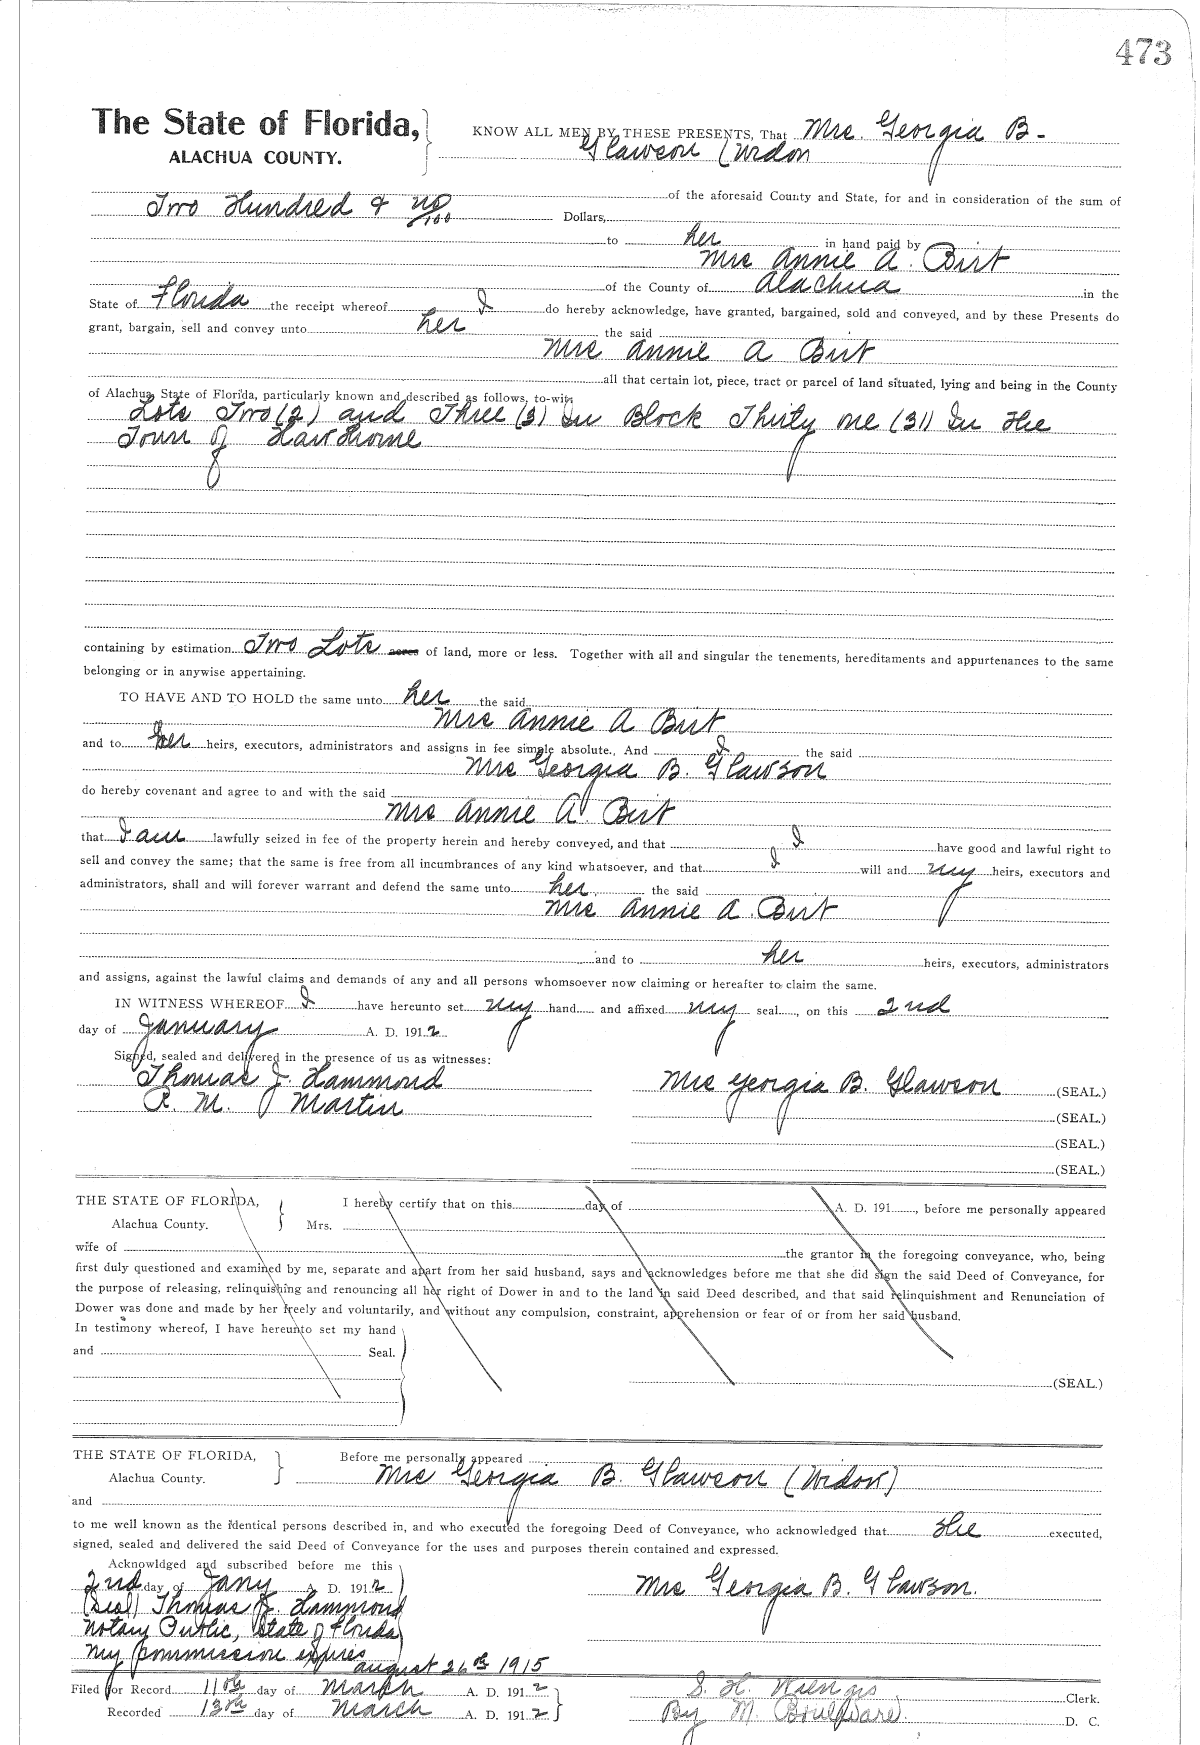 473
The State of Florida, KNOW ALL MEN BY THESE PRESENTS, That Mrs. Georgia B-
ALACHUA COUNTY. Glawson (Widow
of the aforesaid County and State, for and in consideration of the sum of
Two Hundred & no/100 Dollars,
to her in hand paid by
Mrs Annie A. Birt
of the County of Alachua in the
State of Florida the receipt whereof I do hereby acknowledge, have granted, bargained, sold and conveyed, and by these Presents do
grant, bargain, sell and convey unto her the said
Mrs Annie A Birt
all that certain lot, piece, tract or parcel of land situated, lying and being in the County
of Alachua, State of Florida, particularly known and described as follows, to-wit:
Lots Two (2) and Three (3) In Block Thirty one (31) In The
Town of Hawthorne
containing by estimation Two Lots acres of land, more or less. Together with all and singular the tenements, hereditaments and appurtenances to the same
belonging or in anywise appertaining.
TO HAVE AND TO HOLD the same unto her the said
Mrs Annie A Birt
and to her heirs, executors, administrators and assigns in fee simple absolute., And I the said
Mrs Georgia B. Glawson
do hereby covenant and agree to and with the said
Mrs Annie A. Birt
that I am lawfully seized in fee of the property herein and hereby conveyed, and that I have good and lawful right to
sell and convey the same; that the same is free from all incumbrances of any kind whatsoever, and that I will and my heirs, executors and
administrators, shall and will forever warrant and defend the same unto her the said
Mrs Annie A. Birt
and to her heirs, executors, administrators
and assigns, against the lawful claims and demands of any and all persons whomsoever now claiming or hereafter to claim the same.
IN WITNESS WHEREOF I have hereunto set my hand and affixed my seal, on this 2nd
day of January A. D. 1912
Signed, sealed and delivered in the presence of us as witnesses:
Thomas J. Hammond Mrs Georgia B. Glawson (SEAL.)
R. M. Martin (SEAL.)
(SEAL.)
(SEAL.)
THE STATE OF FLORIDA, I hereby certify that on this day of A. D. 191 , before me personally appeared
Alachua County. Mrs.
wife of the grantor in the foregoing conveyance, who, being
first duly questioned and examined by me, separate and apart from her said husband, says and acknowledges before me that she did sign the said Deed of Conveyance, for
the purpose of releasing, relinquishing and renouncing all her right of Dower in and to the land in said Deed described, and that said relinquishment and Renunciation of
Dower was done and made by her freely and voluntarily, and without any compulsion, constraint, apprehension or fear of or from her said husband.
In testimony whereof, I have hereunto set my hand
and Seal.
(SEAL.)
THE STATE OF FLORIDA, Before me personally appeared
Alachua County. Mrs Georgia B. Glawson (Widow)
and
to me well known as the identical persons described in, and who executed the foregoing Deed of Conveyance, who acknowledged that She executed,
signed, sealed and delivered the said Deed of Conveyance for the uses and purposes therein contained and expressed.
Acknowldged and subscribed before me this
2nd day of Jany A. D. 1912 Mrs Georgia B. Glawson.
(Seal) Thomas J. Hammond
Notary Public, State of Florida
My commission expires
August 26th 1915
Filed for Record 11th day of March A. D. 1912 S. H. Clerk.
Recorded 13th day of March A. D. 1912 By M. Boulware. D. C.